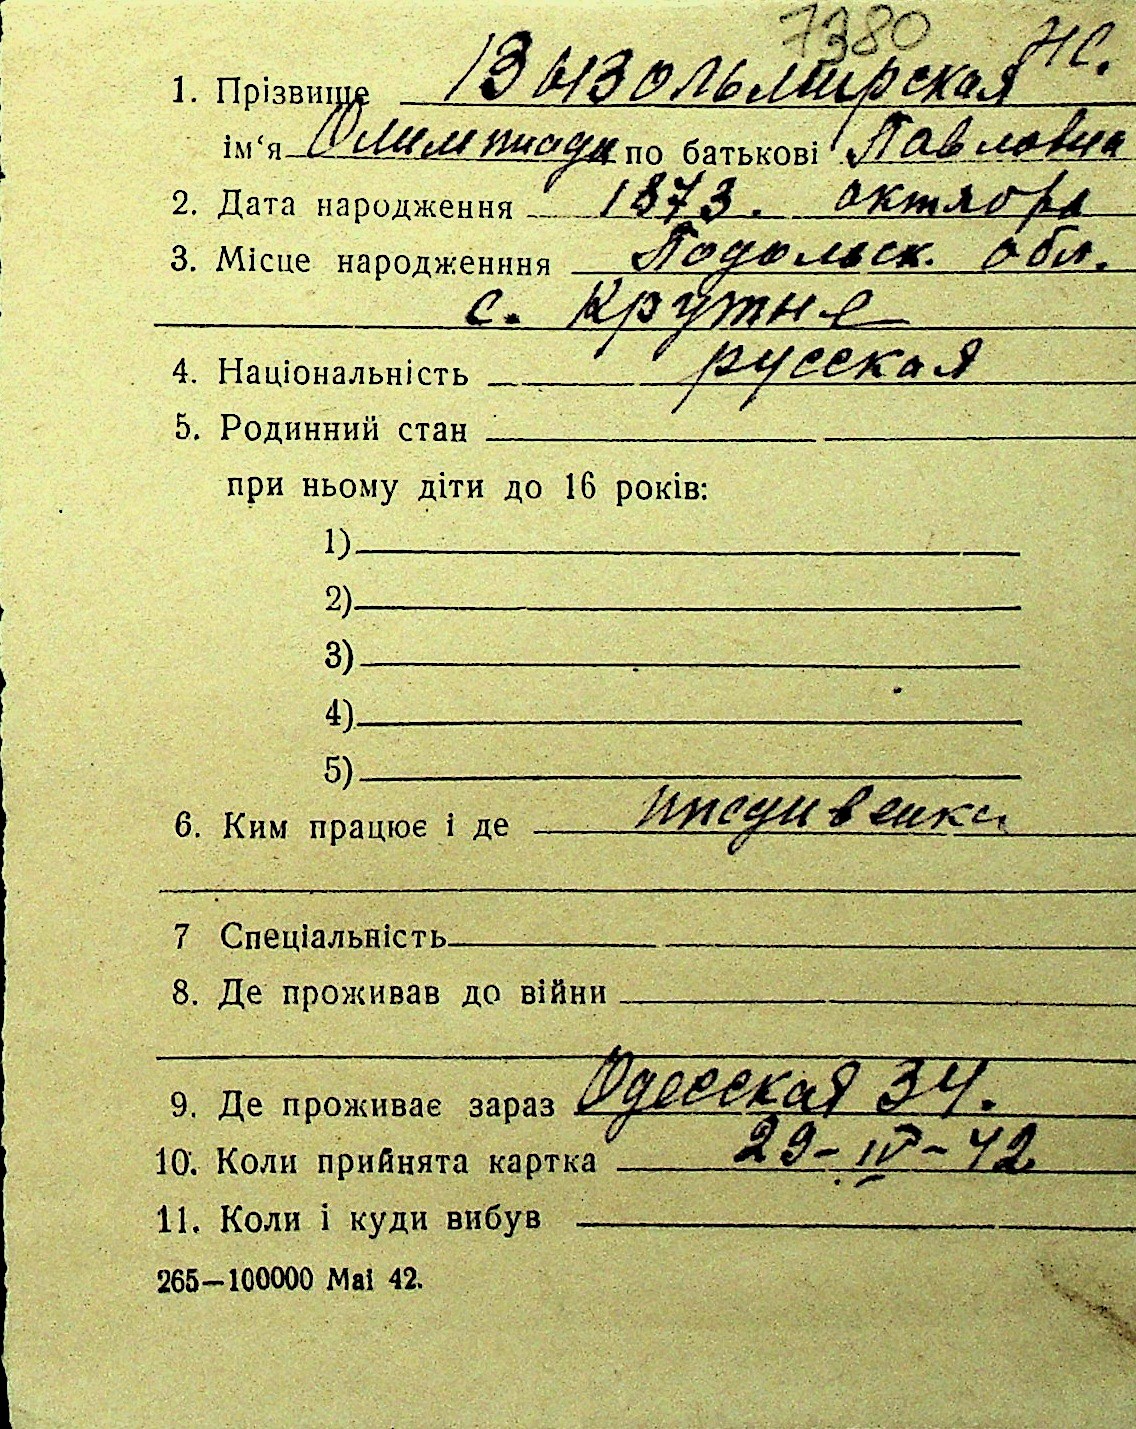 7380
НС.
1. Прізвище Вызольмирская
ім‘я Олимпиада по батькові Павловна
2. Дата народження 1873. октября
3. Місце народженння Подольск. обл.
с. Крутне
4. Національність русская
5. Родинний стан
при ньому діти до 16 років:
1)
2)
3)
4)
5)
6. Ким працює і де иждивенка
7 Спеціальність
8. Де проживав до війни
9. Де проживає зараз Одесская 34.
10. Коли прийнята картка 29-IV-42
11. Коли і куди вибув
265—100000 Mai 42.